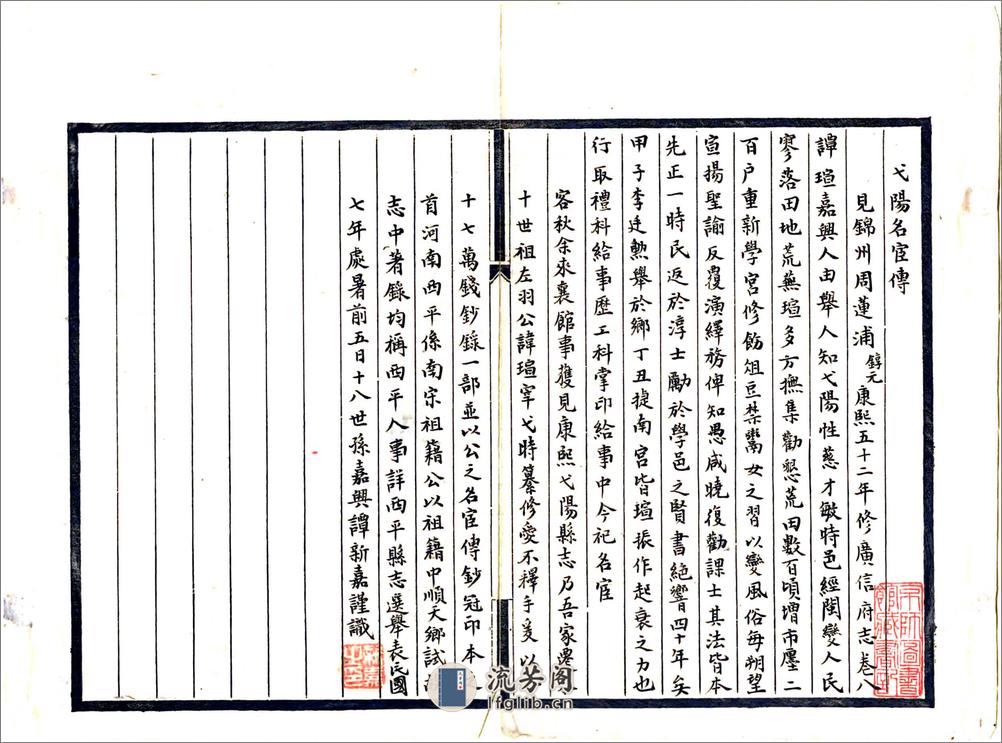 弋陽名宦傳
見錦州周蓮浦錞元康熙五十二年修廣信府志卷八
譚瑄嘉興人由舉人知弋陽性慈才敏時邑經閩變人民
寥落田地荒蕪瑄多方撫集勸懇荒田數百頃增市廛二
百户重新學宮修飭俎豆禁鬻女之習以變風俗每朔望
宣揚聖諭反覆演繹務俾知愚咸曉復勸課士其法皆本
先正一時民返於淳士勵於學邑之賢書絶響四十年矣
甲子李廷勲舉於鄉丁丑捷南宫皆瑄振作起衰之力也
行取禮科給事歷工科掌印給事中今祀名宦
客秋余來襄館事獲見康熙弋陽縣志乃吾家遷
十世祖左羽公諱瑄宰弋時纂修愛不釋手爰以
十七萬錢鈔錄一部並以公之名宦傳鈔冠印本
首河南西平係南宋祖籍公以祖籍中順天鄉試
志中著錄均稱西平人事詳西平縣志選舉表民國
七年處暑前五日十八世孫嘉興譚新嘉謹識
京師圖書館藏書印
流芳阁
lfglib.cn